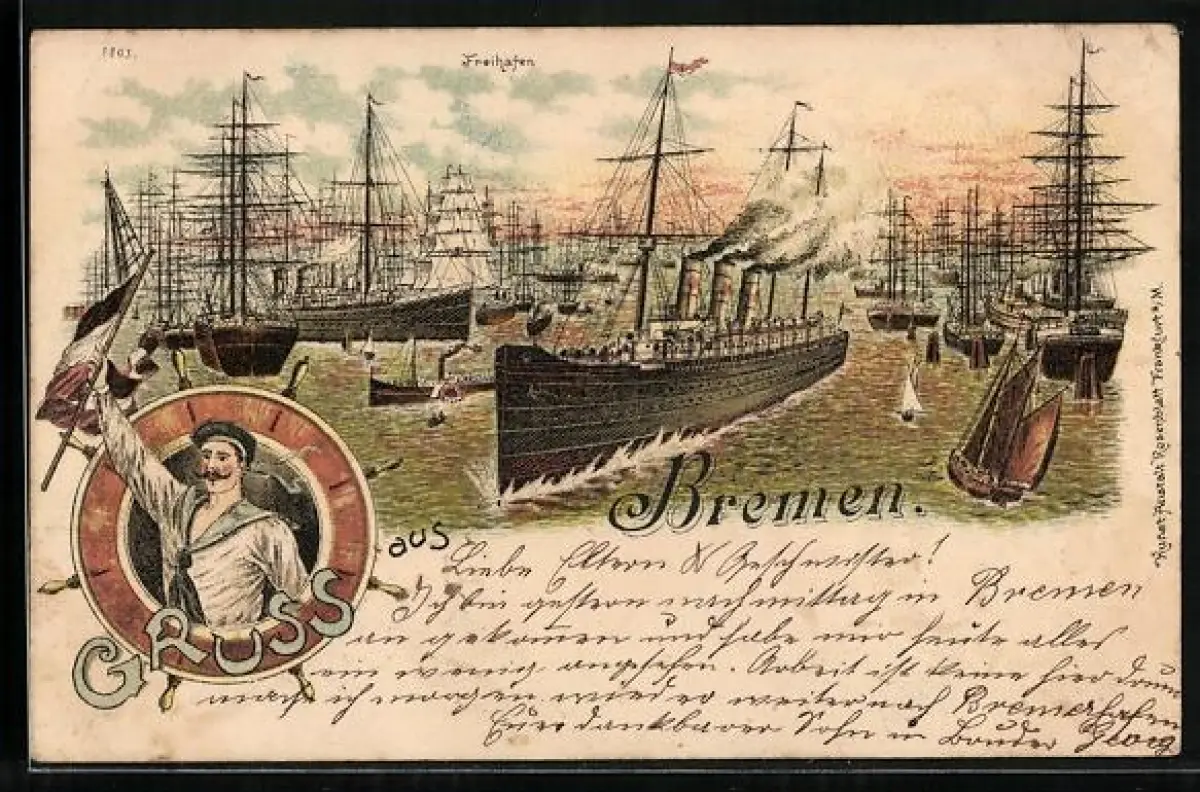 1803.
Freihafen
Bremen.
aus
GRUSS
Liebe Eltern & Geschwister!
Ich bin gestern nachmittag in Bremen
an gekom̄en und habe mir heute alles
ein wenig angesehen. Arbeit ist keine hier drum
mach ich morgen wieder weiter nach Bremerhafen
Euer dankbarer Sohn u Bruder Georg
Kunst-Anstalt Rosenblatt Frankfurt a/M.